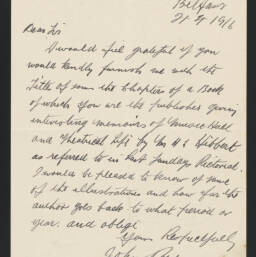 Belfast
21 4 1916
Dear Sir
I would feel grateful if you
would kindly furnish me with the
Title of some the Chapters of a Book
of which you are the publisher giving
interesting memoirs of Music Hall
and Theatrical Life by Mr H G Hibbert
as referred to in last Sunday Pictorial.
I would be pleased to know of some
of the illustrations and how far the
author goes back to what period or
year. and oblige
Yours Respectfully
John